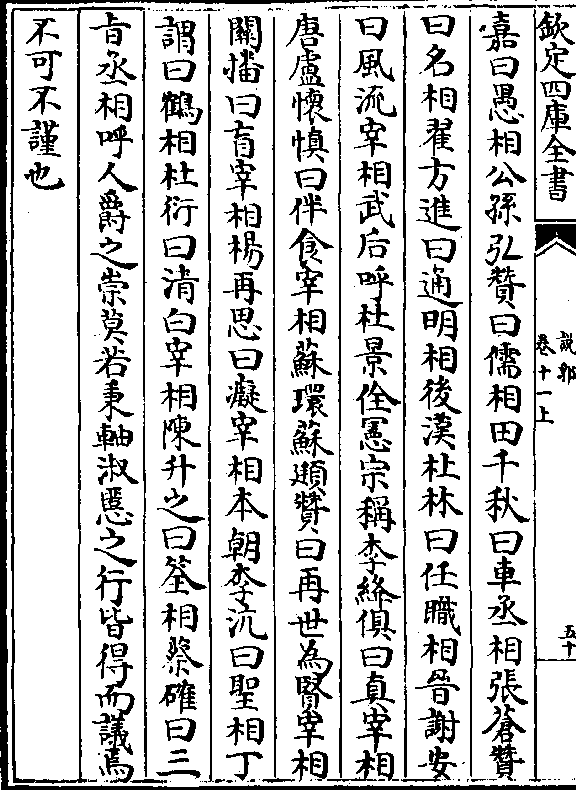 欽定四庫全書
說郛
卷十一上
五十
嘉曰愚相公孫弘贊曰儒相田千秋曰車丞相張蒼贊
曰名相翟方進曰通明相後漢杜林曰任職相晉謝安
曰風流宰相武后呼杜景佺憲宗稱李絳俱曰真宰相
唐盧懷慎曰伴食宰相蘇環蘇頲贊曰再世為賢宰相
關播曰盲宰相楊再思曰癡宰相本朝李沆曰聖相丁
謂曰鶴相杜衍曰清白宰相陳升之曰筌相蔡確曰三
旨丞相呼人爵之崇莫若秉軸淑慝之行皆得而議焉
不可不謹也